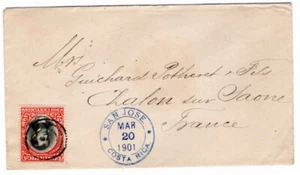 Mrs
Guichard Potheret & Fils
Chalon sur Saone
France
SAN JOSE
MAR
20
1901
COSTA RICA